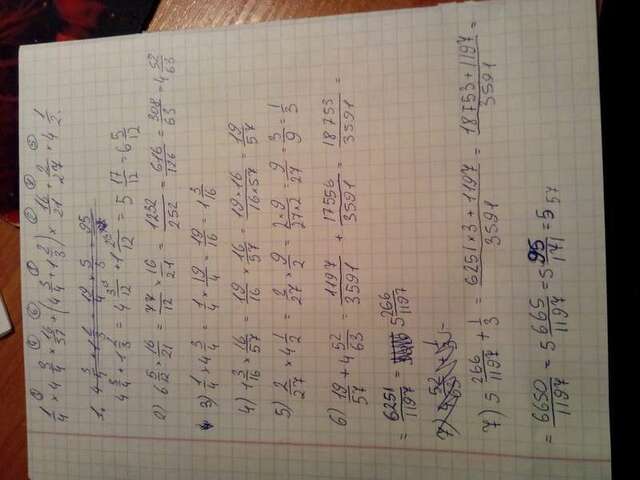 1/4 × 4 3/4 × 16/57 + (4 3/4 + 1 2/3) × 16/21 + 2/27 × 4 1/2.
4 3/4 + 1 2/3 = 4 9/12 + 1 8/12 = 5 17/12 = 6 5/12
2) 6 5/12 × 16/21 = 77/12 × 16/21 = 1232/252 = 616/126 = 308/63 = 4 52/63
3) 1/4 × 4 3/4 = 1/4 × 19/4 = 19/16 = 1 3/16
4) 1 3/16 × 16/57 = 19/16 × 16/57 = 19×16/16×57 = 19/57
5) 2/27 × 4 1/2 = 2/27 × 9/2 = 2×9/27×2 = 9/27 = 3/9 = 1/3
6) 19/57 + 4 52/63 = 1197/3591 + 17556/3591 = 18753/3591 =
= 6251/1197 = 5 266/1197
7) 5 266/1197 + 1/3 = 6251×3+1197/3591 = 18753+1197/3591 =
= 6650/1197 = 5 665/1197 = 5 95/171 = 5
57